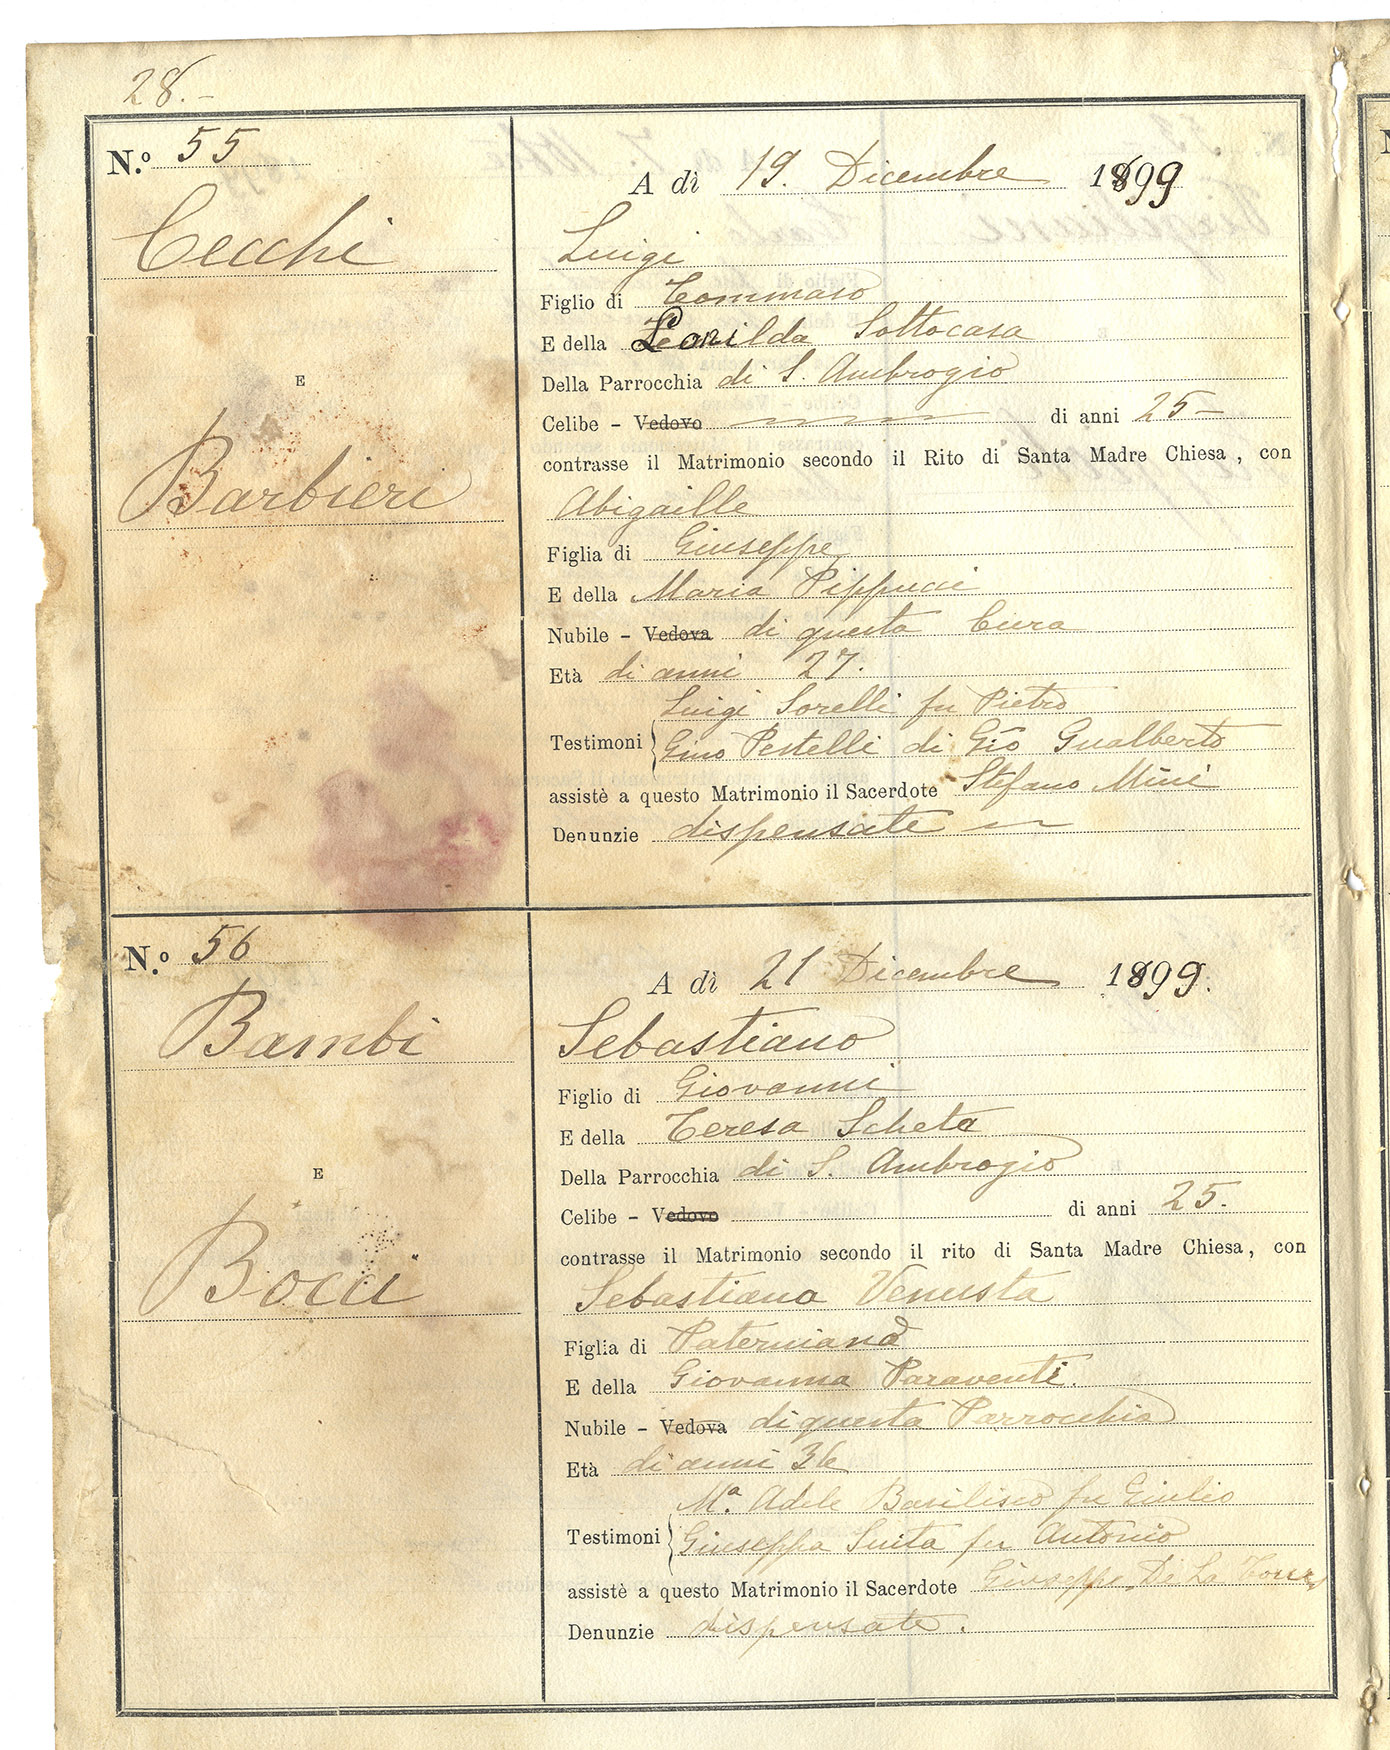 28.-
N.º 55
A dì 19. Dicembre 1899
Cecchi
Luigi
Figlio di Tommaso
E della Leonilda Sottocasa
E
Della Parrocchia di S. Ambrogio
Celibe - Vedovo di anni 25-
contrasse il Matrimonio secondo il Rito di Santa Madre Chiesa, con
Barbieri
Abigaille
Figlia di Giuseppe
E della Maria Pippucci
Nubile - Vedova di questa Cura
Età di anni 27.
Luigi Sorelli fu Pietro
Testimoni Gino Pestelli di Gio Gualberto
assistè a questo Matrimonio il Sacerdote Stefano Mini
Denunzie dispensate
N.º 56
A dì 21 Dicembre 1899.
Bambi
Sebastiano
Figlio di Giovanni
E della Teresa Scheta
E
Della Parrocchia di S. Ambrogio
Celibe - Vedovo di anni 25.
contrasse il Matrimonio secondo il rito di Santa Madre Chiesa, con
Bocci
Sebastiana Venusta
Figlia di Paterniano
E della Giovanna Paraventi.
Nubile - Vedova di questa Parrocchia
Età di anni 36
Mª. Adele Basilisco fu Giulio
Testimoni Giuseppa Suita fu Antonio
assistè a questo Matrimonio il Sacerdote Giuseppe De La Tour
Denunzie dispensate.